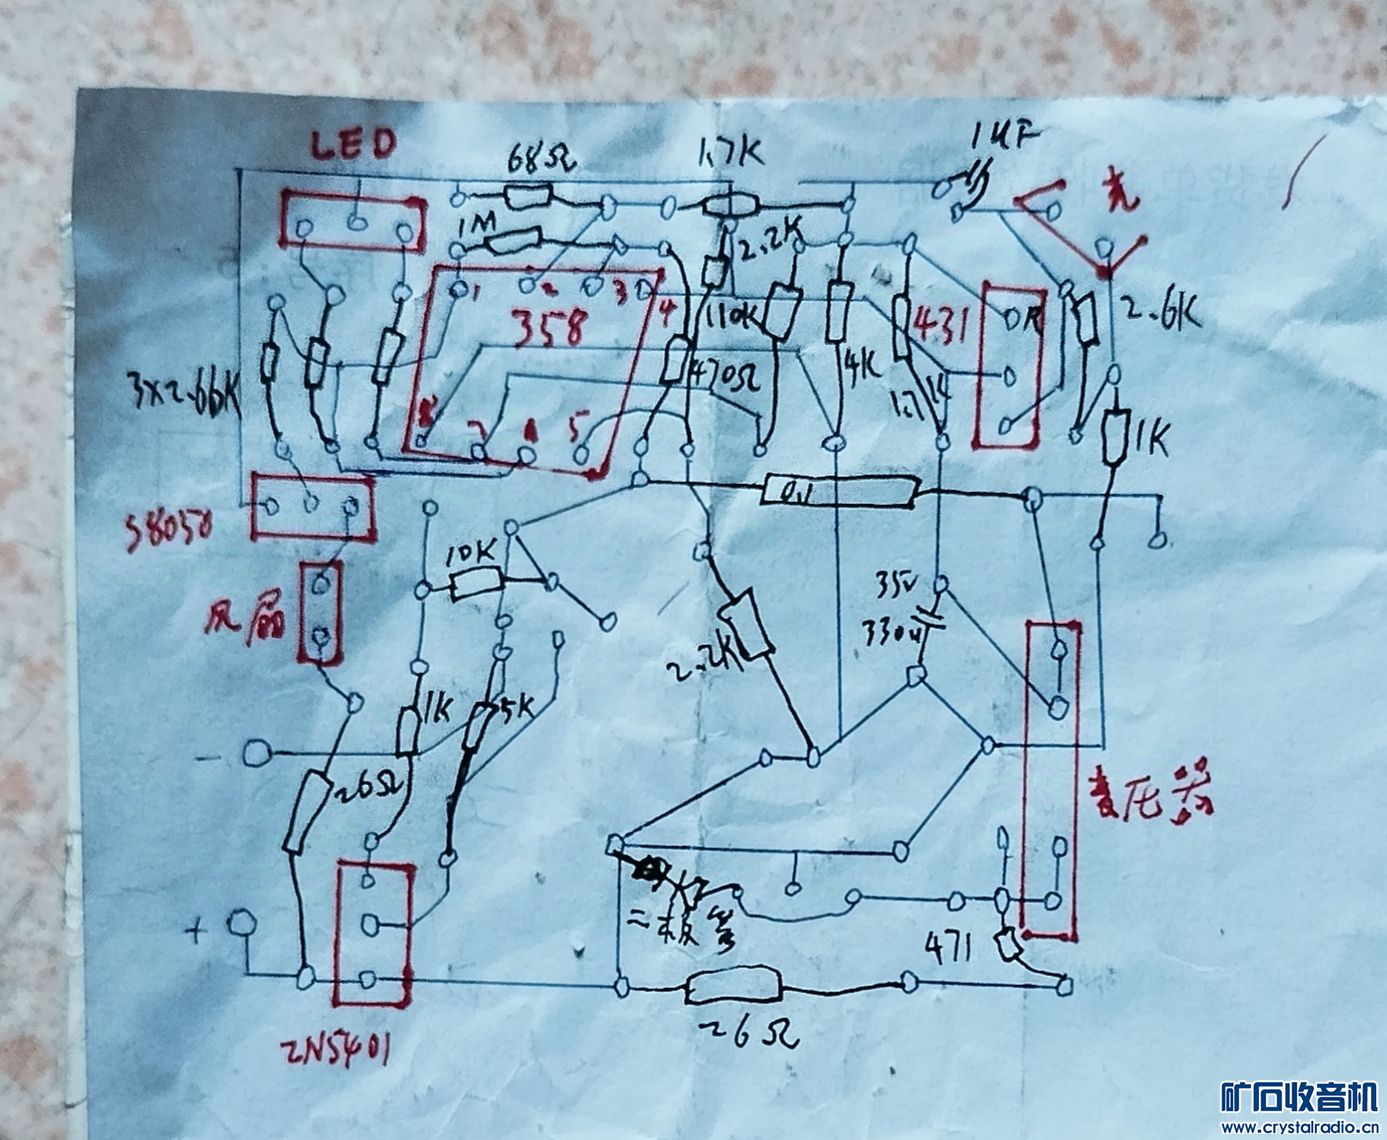 LED
68Ω
1.7K
1UF
光
1M
2.2K
1
2
3
4
358
110K
431
R
2.6K
3x2.66K
470Ω
4K
1.71K
7
5
1K
0.1
S8050
10K
35V
330u
风扇
2.2K
1K
5K
-
26Ω
变压器
+
二极管
471
26Ω
2N5401
矿石收音机
www.crystalradio.cn